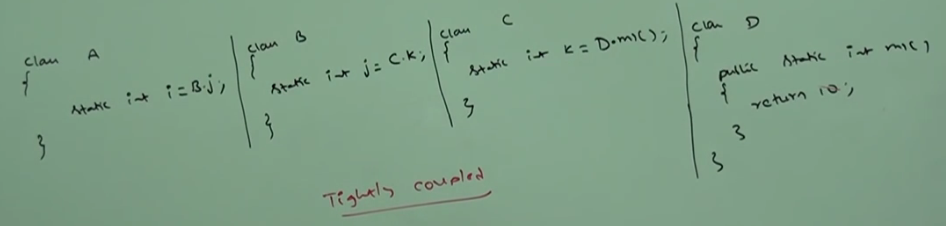 class A
{
static int i=B.j;
}
class B
{
static int j=C.k;
}
class C
{
static int k=D.m1();
}
class D
{
public static int m1()
{
return 10;
}
}
Tightly coupled